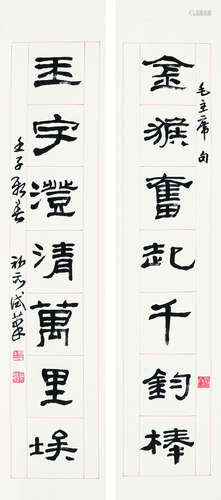 毛主席句
金猴奮起千鈞棒
玉宇澄清萬里埃
壬子新春
試筆